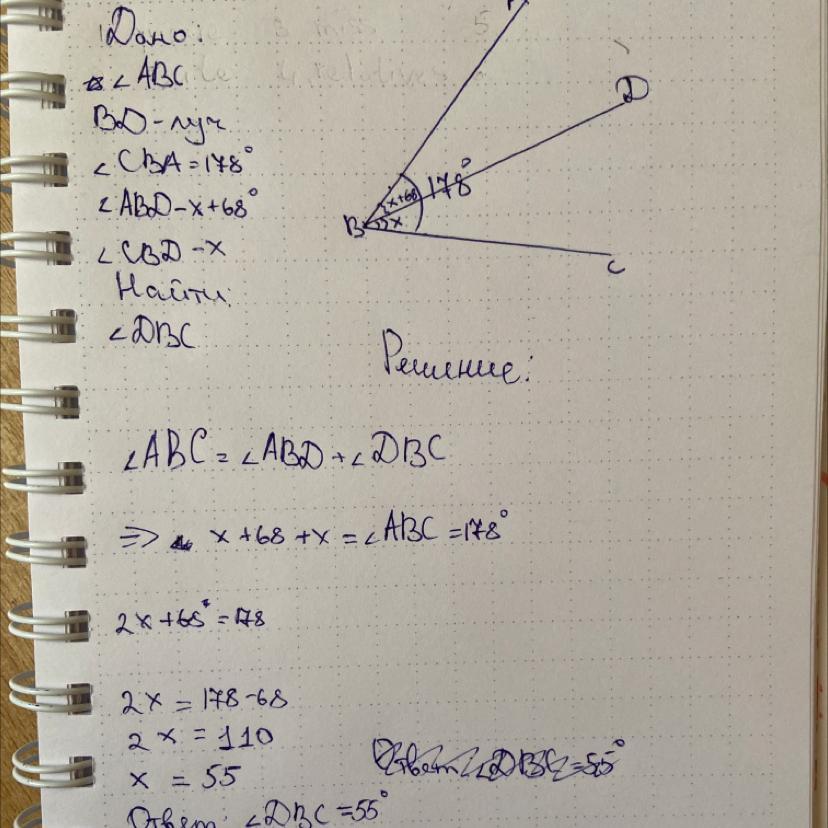 Дано:
∠ABC
BD - луч
∠CBA = 178°
∠ABD - x + 68°
∠CBD - x
Найти:
∠DBC
D
178°
x+68
B
x
C
Решение:
∠ABC = ∠ABD + ∠DBC
=> x + 68 + x = ∠ABC = 178°
2x + 68° = 178
2x = 178 - 68
2x = 110
x = 55
Ответ: ∠DBC = 55°
Ответ: ∠DBC = 55°